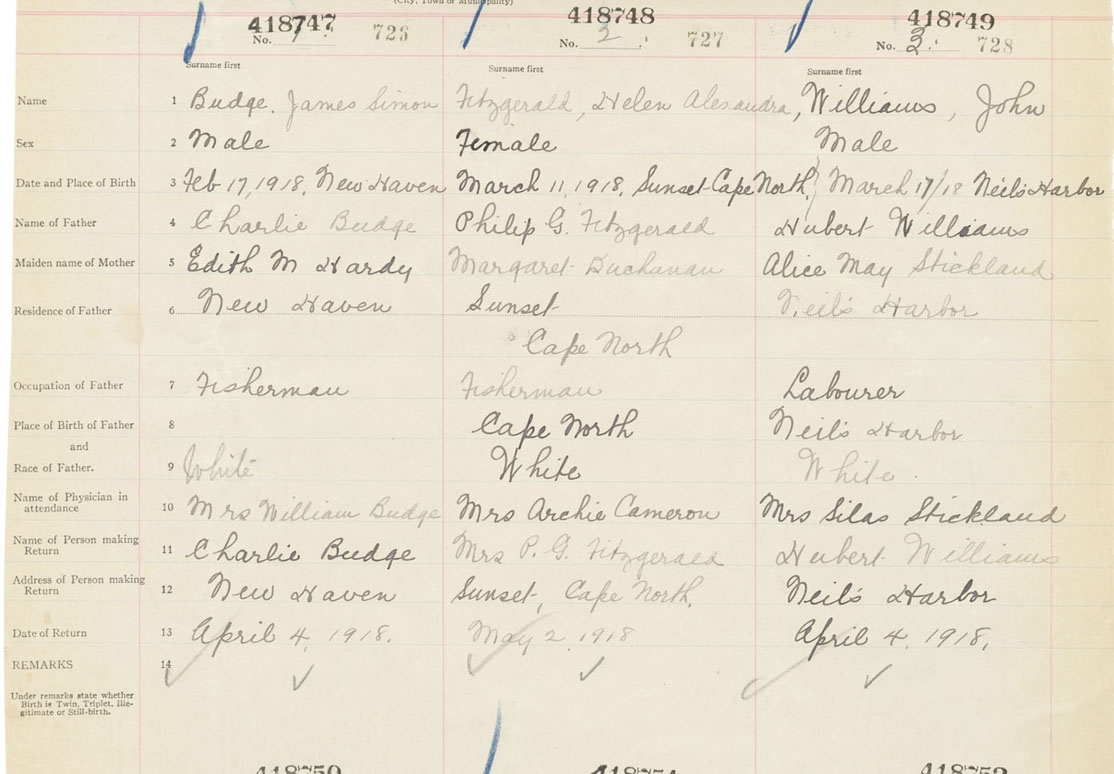 (City, Town or Municipality)
418747 418748 418749
No. 1 726 No. 2 727 No. 3. 728
Surname first Surname first Surname first
Name 1 Budge, James Simon Fitzgerald, Helen Alexandra, Williams, John
Sex 2 Male Female Male
Date and Place of Birth 3 Feb 17, 1918, New Haven March 11, 1918, Sunset Cape North, March 17/18 Neil's Harbor
Name of Father 4 Charlie Budge Philip G. Fitzgerald Hubert Williams
Maiden name of Mother 5 Edith M Hardy Margaret Buchanan Alice May Stickland
Residence of Father 6 New Haven Sunset Neil's Harbor
Cape North
Occupation of Father 7 Fisherman Fisherman Labourer
Place of Birth of Father 8 Cape North Neil's Harbor
and
Race of Father. 9 White White White.
Name of Physician in attendance 10 Mrs William Budge Mrs Archie Cameron Mrs Silas Stickland
Name of Person making Return 11 Charlie Budge Mrs P. G. Fitzgerald Hubert Williams
Address of Person making Return 12 New Haven Sunset, Cape North. Neil's Harbor
Date of Return 13 April 4, 1918. May 2, 1918 April 4, 1918.
REMARKS 14
Under remarks state whether
Birth is Twin, Triplet, Ille-
gitimate or Still-birth.
418750 418752